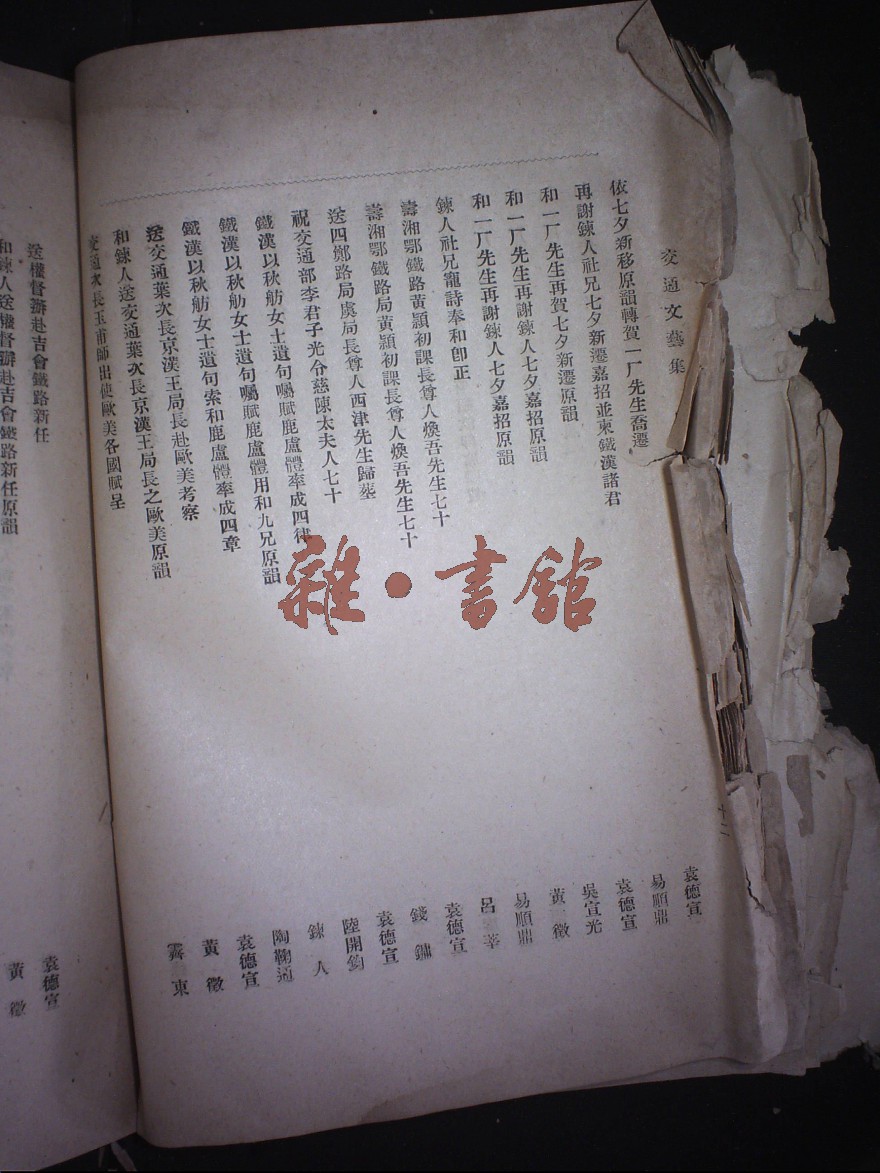 交通文藝集
依七夕新移原韻轉賀一厂先生喬遷 袁德宣
再謝鍊人社兄七夕新遷嘉招並柬鐵漢諸君 易順鼎
和一厂先生再賀七夕新遷原韻 袁德宣
和一厂先生再謝鍊人七夕嘉招原韻 吳宣光
和一厂先生再謝鍊人七夕嘉招原韻 黃徵
鍊人社兄寵詩奉和卽正 易順鼎
壽湘鄂鐵路黃顯初課長尊人煥吾先生七十 呂莘
壽湘鄂鐵路局黃顯初課長尊人煥吾先生七十 袁德宣
送四鄭路局虞局長尊人西津先生歸塟 錢鏽
祝交通部李君子光令慈陳太夫人七十 袁德宣
鐵漢以秋舫女士遺句囑賦鹿盧體率成四律 陸開鈞
鐵漢以秋舫女士遺句囑賦鹿盧體用和九兄原韻 鍊人
鐵漢以秋舫女士遺句索和鹿盧體率成四章 陶鞠通
送交通葉次長京漢王局長赴歐美考察 袁德宣
和鍊人送交通葉次長京漢王局長之歐美原韻 黃徵
交通次長玉甫師出使歐美各國賦呈 霽東
十二
送權督辦赴吉會鐵路新任 袁德宣
和鍊人送權督辦赴吉會鐵路新任原韻 黃徵
雜·書館